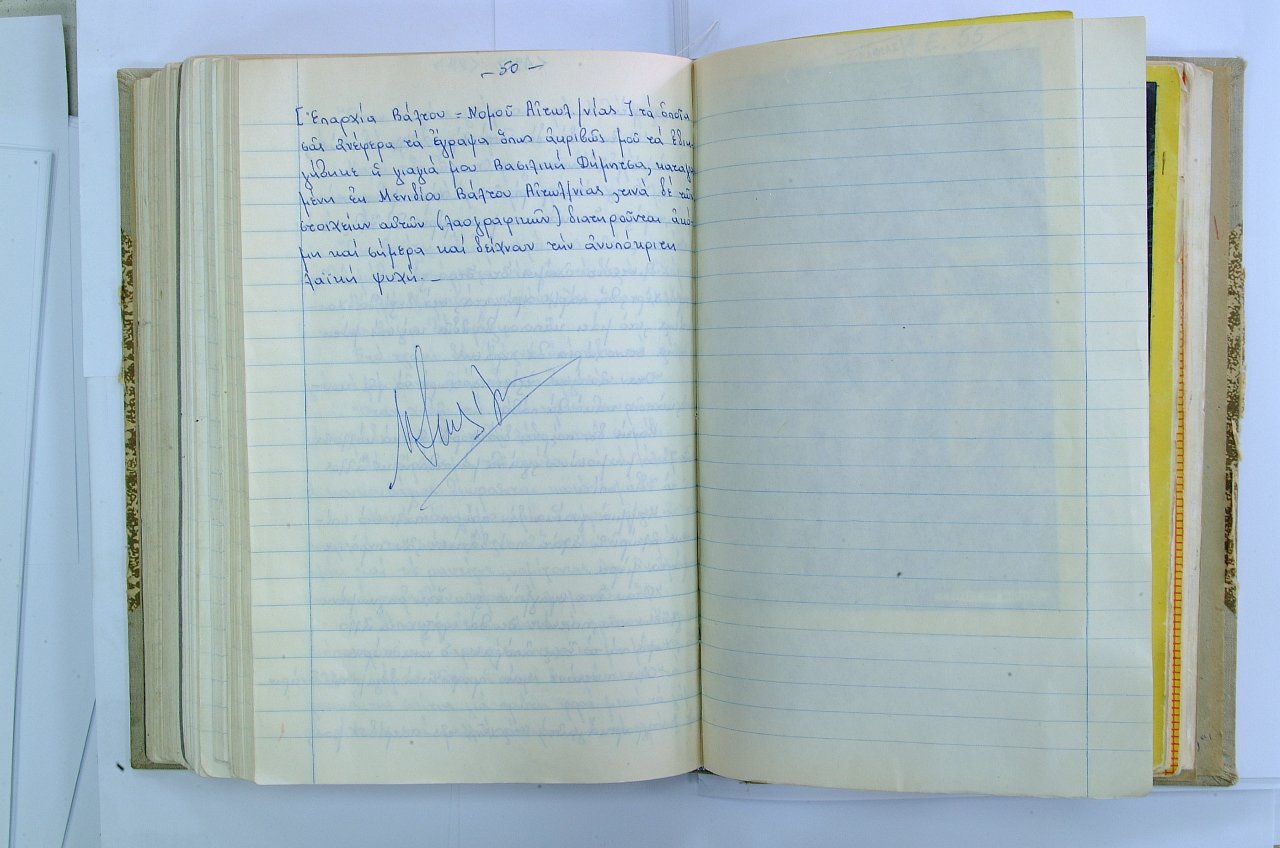 - 50 -
[Ἐπαρχία Βάλτου = Νομοῦ Αἰτωλ/νίας] τά ὁποῖα
σᾶς ἀνέφερα τά ἔγραψα ὅπως ἀκριβῶς μοῦ τά ἐδιη-
γήθηκε ἡ γιαγιά μου Βασιλική Φήμητσα, καταγο
μένη ἐκ Μενιδίου Βάλτου Αἰτωλ/νίας, τινά δέ τῶν
στοιχείων αὐτῶν (λαογραφικῶν) διατηροῦνται ἀκό-
μη καί σήμερα καί δείχνουν τήν ἀνυπόκριτη
λαϊκή ψυχή. -